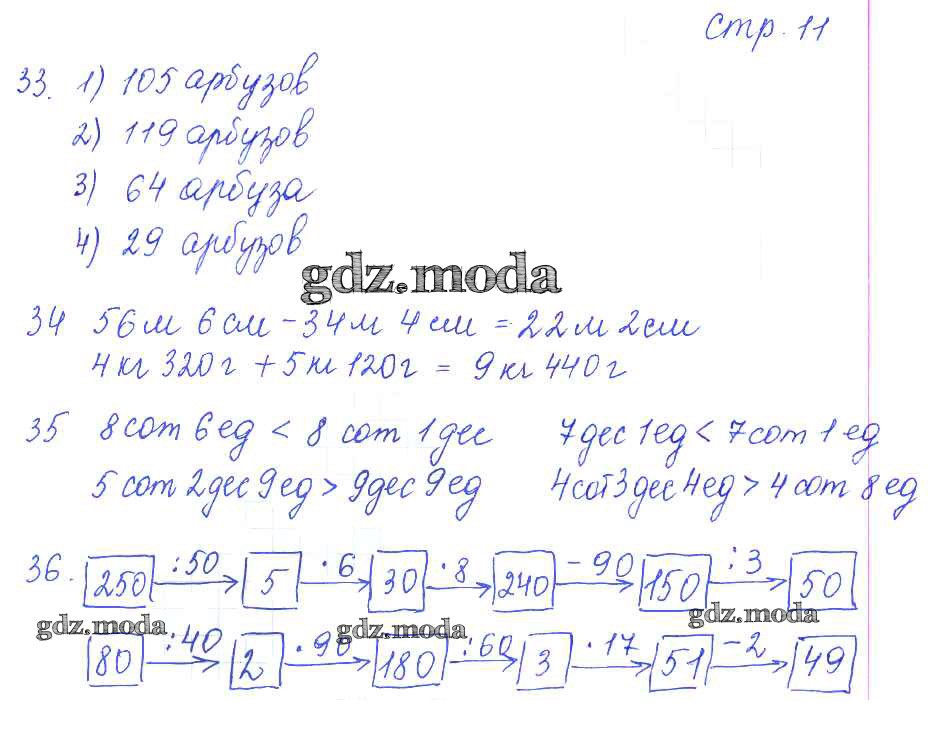 стр. 11
33. 1) 105 арбузов
2) 119 арбузов
3) 64 арбуза
4) 29 арбузов
gdz.moda
34 56м 6см - 34м 4см = 22м 2см
4кг 320г + 5кг 120г = 9кг 440г
35 8сот 6ед < 8 сот 1дес 7дес 1ед < 7сот 1ед
5сот 2дес 9ед > 9дес 9ед 4сот 3дес 4ед > 4сот 8ед
36. 250 :50 5 ·6 30 ·8 240 -90 150 :3 50
gdz.moda gdz.moda gdz.moda
80 :40 2 ·90 180 :60 3 ·17 51 -2 49